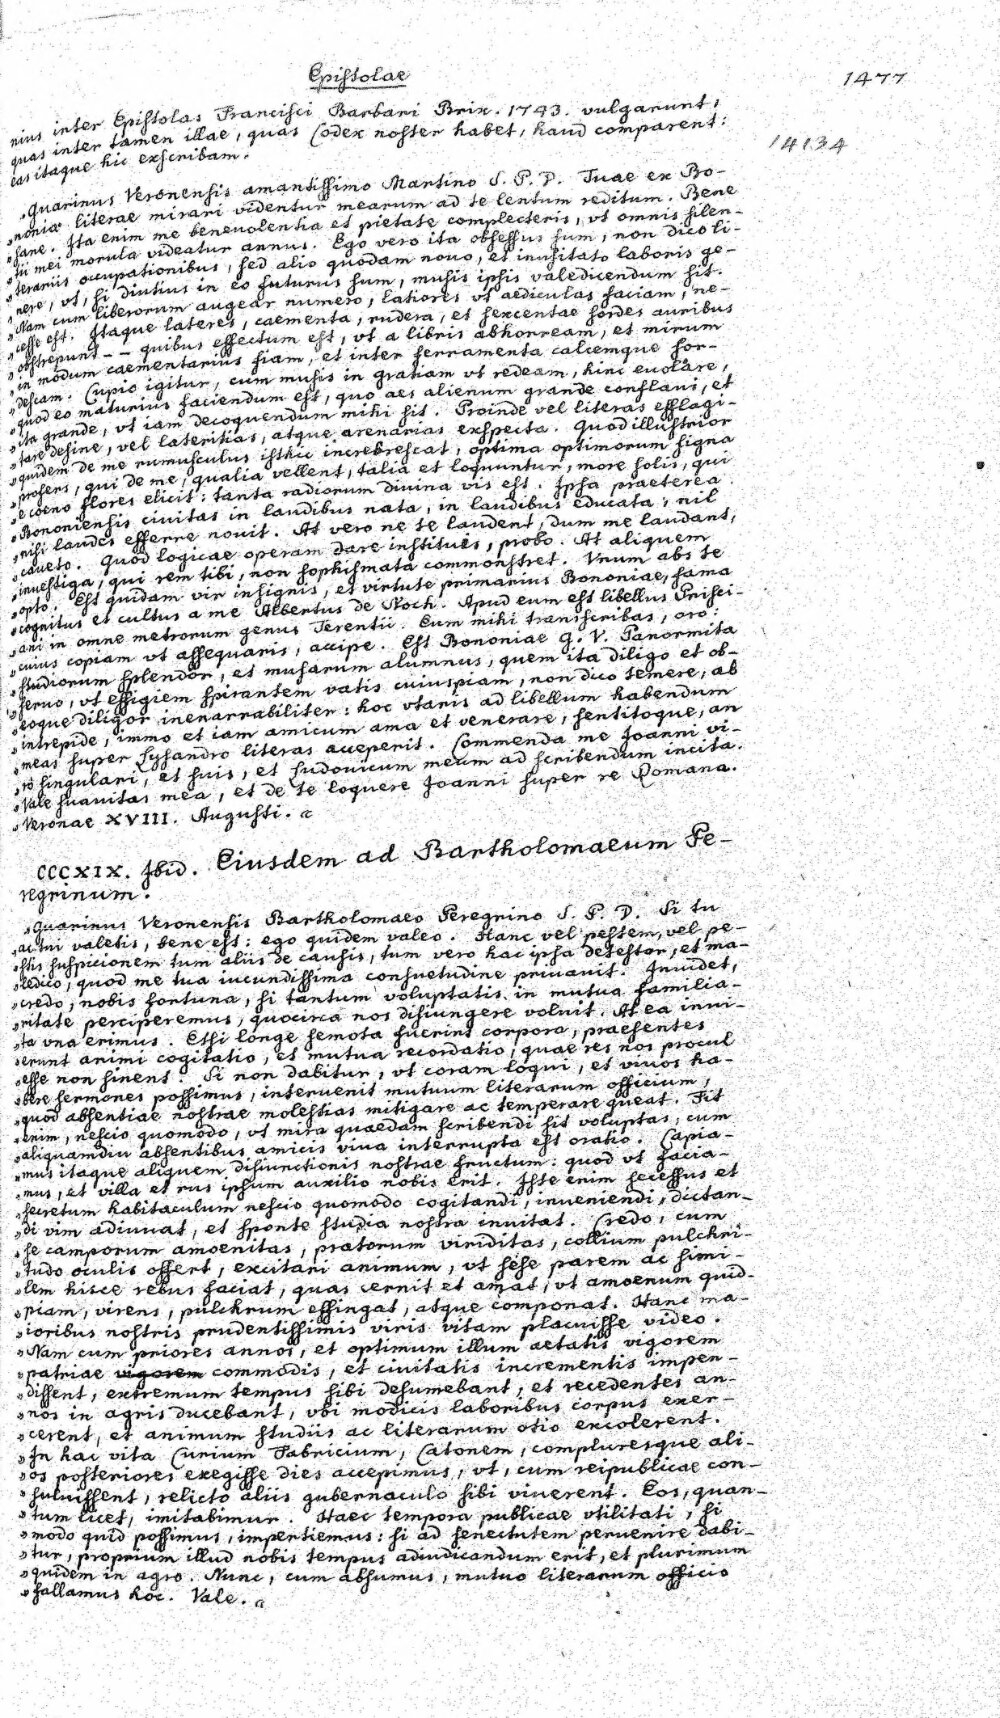 Epistolae
1477
nius inter Epistolas Francisci Barbari Brix. 1743. vulgarunt,
quas inter tamen illae, quas Codex noster habet, haud comparent:
14134
eas itaque hic exscribam.
„Guarinus Veronensis amantissimo Martino S. P. D. Tuae ex Bo-
„nonia literae mirari videntur mearum ad te lentum reditum. Bene
„sane. Ita enim me benevolentia et pietate complecteris, vt omnis silen-
„tii mei morula videatur annus. Ego vero ita obsessus sum, non dico li-
„terariis occupationibus, sed alio quodam nouo, et inusitato laboris ge-
„nere, vt, si diutius in eo futurus sum, musis ipsis valedicendum sit.
„Nam cum liberorum augear numero, latiores vt aediculas faciam, ne-
„cesse est. Itaque lateres, caementa, rudera, et sexcentae sordes auribus
„obstrepunt -- quibus effectum est, vt a libris abhorream, et mirum
„in modum caementarius fiam, et inter ferramenta calcemque sor-
„descam. Cupio igitur, cum musis in gratiam vt redeam, hinc euolare,
„quod eo maturius faciendum est, quo aes alienum grande conflaui, et
„ita grande, vt iam decoquendum mihi sit. Proinde vel literas efflagi-
„tare desine, vel lateritias, atque arenarias exspecta. Quod illustrior
„quidem de me rumusculus isthic increbrescat, optima optimorum signa
„profers, qui de me, qualia vellent, talia et loquuntur, more solis, qui
„e coeno flores elicit: tanta radiorum diuina vis est. Ipsa praeterea
„Bononiensis ciuitas in laudibus nata, in laudibus educata, nil
„nisi laudes efferre nouit. At vero ne te laudent, dum me laudant,
„caueto. Quod logicae operam dare instituis, probo. At aliquem
„inuestiga, qui rem tibi, non sophismata commonstret. Vnum abs te
„opto. Est quidam vir insignis, et virtute primarius Bononiae, fama
„cognitus et cultus a me Albertus de Noch. Apud eum est libellus Prisci-
„ani in omne metrorum genus Terentii. Eum mihi transcribas, oro:
„cuius copiam vt assequaris, accipe. Est Bononiae G. V. Panormita
„studiorum splendor, et musarum alumnus, quem ita diligo et ob-
„seruo, vt effigiem spirantem vatis cuiuspiam, non dico temere, ab
„eoque diligor inenarrabiliter: hoc vtaris ad libellum habendum
„intrepide, immo et iam amicum ama et venerare, sentitoque, an
„meas super Lysandro literas acceperit. Commenda me Joanni vi-
„ro singulari, et suis, et Ludouicum meum ad scribendum incita.
„Vale suauitas mea, et de te loquere Joanni super re Romana.
„Veronae XVIII. Augusti. „
CCCXIX. Ibid. Eiusdem ad Bartholomaeum Pe-
regrinum.
„Guarinus Veronensis Bartholomaeo Peregrino S. P. D. Si tu
„ac tui valetis, bene est: ego quidem valeo. Hanc vel pestem, vel pe-
„stis suspicionem tum aliis de causis, tum vero hac ipsa detestor, et ma-
„ledico, quod me tua iucundissima consuetudine priuauit. Inuidet,
„credo, nobis fortuna, si tantum voluptatis in mutua familia-
„ritate perciperemus, quocirca nos disiungere voluit. At ea inui-
„ta vna erimus. Etsi longe semota fuerint corpora, praesentes
„erunt animi cogitatio, et mutua recordatio, quae res nos procul
„esse non sinent. Si non dabitur, vt coram loqui, et viuos ha-
„bere sermones possimus, interuenit mutuum literarum officium,
„quod absentiae nostrae molestias mitigare ac temperare queat. Fit
„enim, nescio quomodo, vt mira quaedam scribendi sit voluptas, cum
„aliquamdiu absentibus amicis viua interrupta est oratio. Capia-
„mus itaque aliquem disiunctionis nostrae fructum: quod vt facia-
„mus, et villa et rus ipsum auxilio nobis erit. Iste enim secessus et
„secretum habitaculum nescio quomodo cogitandi, inueniendi, dictan-
„di vim adiuuat, et sponte studia nostra inuitat. Credo, cum
„se camporum amoenitas, pratorum viriditas, collium pulchri-
„tudo oculis offert, excitari animum, vt sese parem ac simi-
„lem hisce rebus faciat, quas cernit et amat, vt amoenum quid-
„piam, virens, pulchrum effingat, atque componat. Hanc ma-
„ioribus nostris prudentissimis viris vitam placuisse video.
„Nam cum priores annos, et optimum illum aetatis vigorem
„patriae vigorem commodis, et ciuitatis incrementis impen-
„dissent, extremum tempus sibi desumebant, et recedentes an-
„nos in agris ducebant, vbi modicis laboribus corpus exer-
„cerent, et animum studiis ac literarum otio excolerent.
„In hac vita Curium Fabricium, Catonem, compluresque ali-
„os posteriores exegisse dies accepimus, vt, cum reipublicae con-
„suluissent, relicto aliis gubernaculo sibi viuerent. Eos, quan-
„tum licet, imitabimur. Haec tempora publicae vtilitati, si
„modo quid possimus, impertiemus: si ad senectutem peruenire dabi-
„tur, proprium illud nobis tempus adiudicandum erit, et plurimum
„quidem in agro. Nunc, cum absumus, mutuo literarum officio
„fallamus hoc. Vale. „